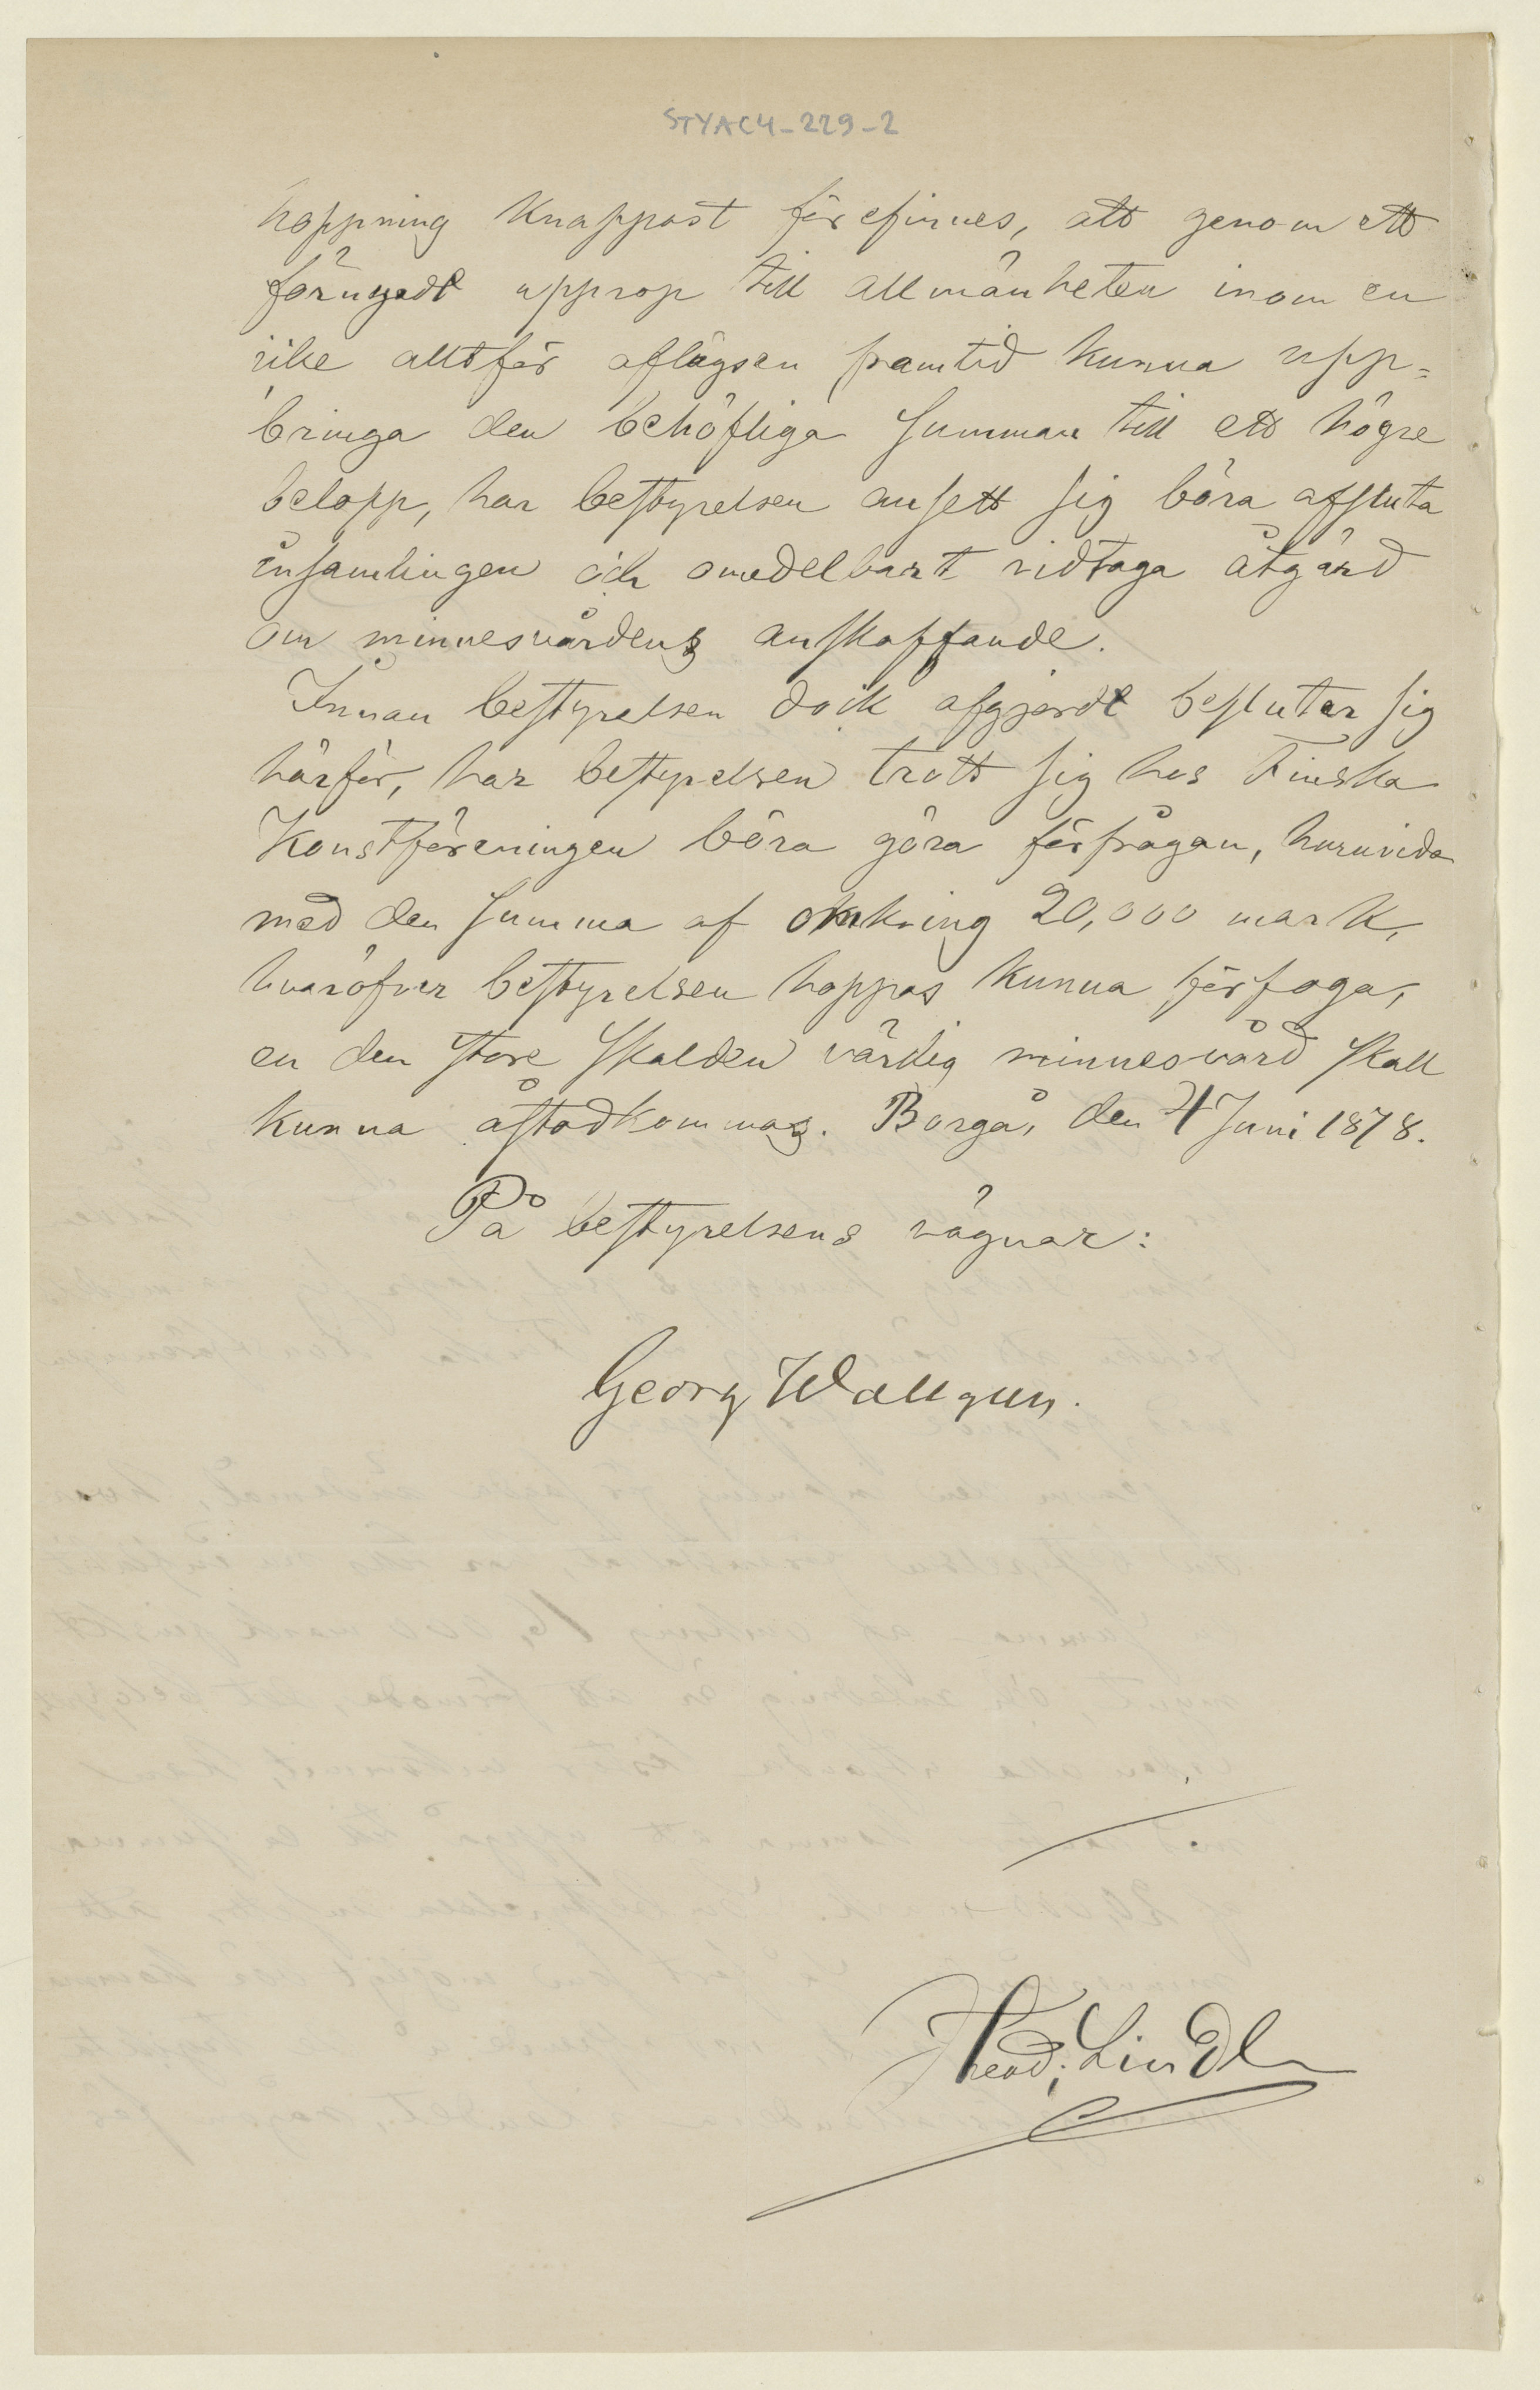 STYAC4-229-2
hoppning knappast förefinnes, att genom ett
förnyadt upprop till allmänheten inom en
icke alltför aflägsen framtid kunna upp=
bringa den behöfliga summan till ett högre
belopp, har bestyrelsen ansett sig böra afsluta
insamlingen och omedelbart vidtaga åtgärd
om minnesvårdens anskaffande.
Innan bestyrelsen dock afgjordt besluter sig
härför, har bestyrelsen trott sig hos Finska
Konstföreningen böra göra förfrågan, huruvida
med den summa af omkring 20,000 mark,
hvaröfver bestyrelsen hoppas kunna förfoga,
en den store skalden värdig minnesvård skall
kunna åstadkommas. Borgå, den 4 Juni 1878.
På bestyrelsens vägnar:
Georg Wallgren.
Theod. Lindh